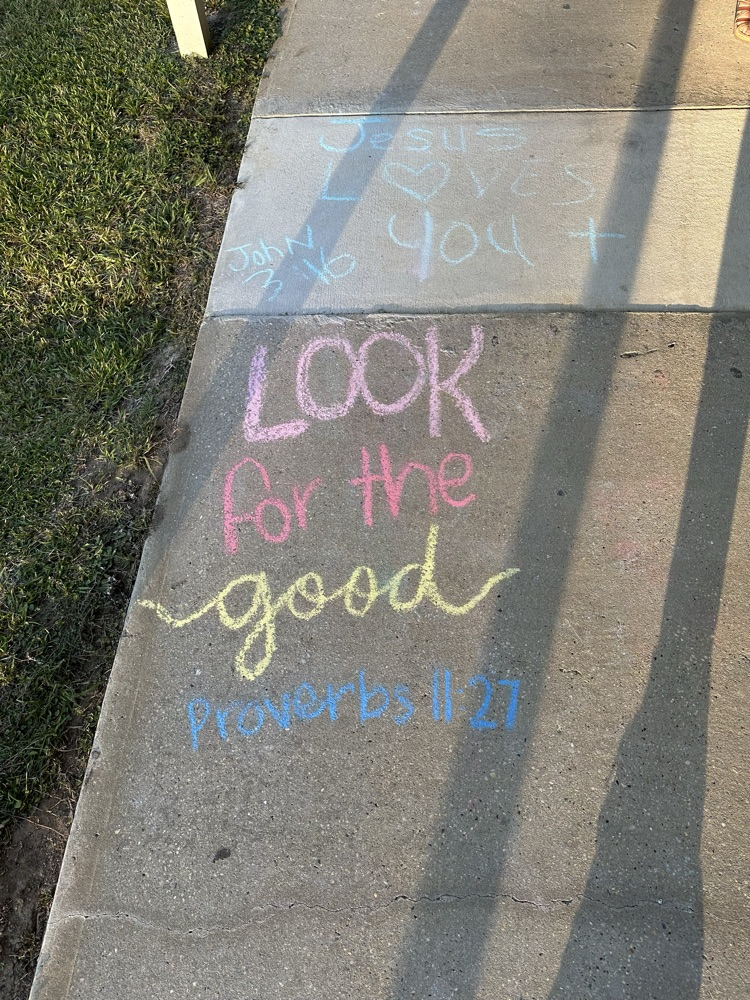 Jesus
LOVES
YOU +
JohN
3:16
LOOK
for the
good
Proverbs 11:27